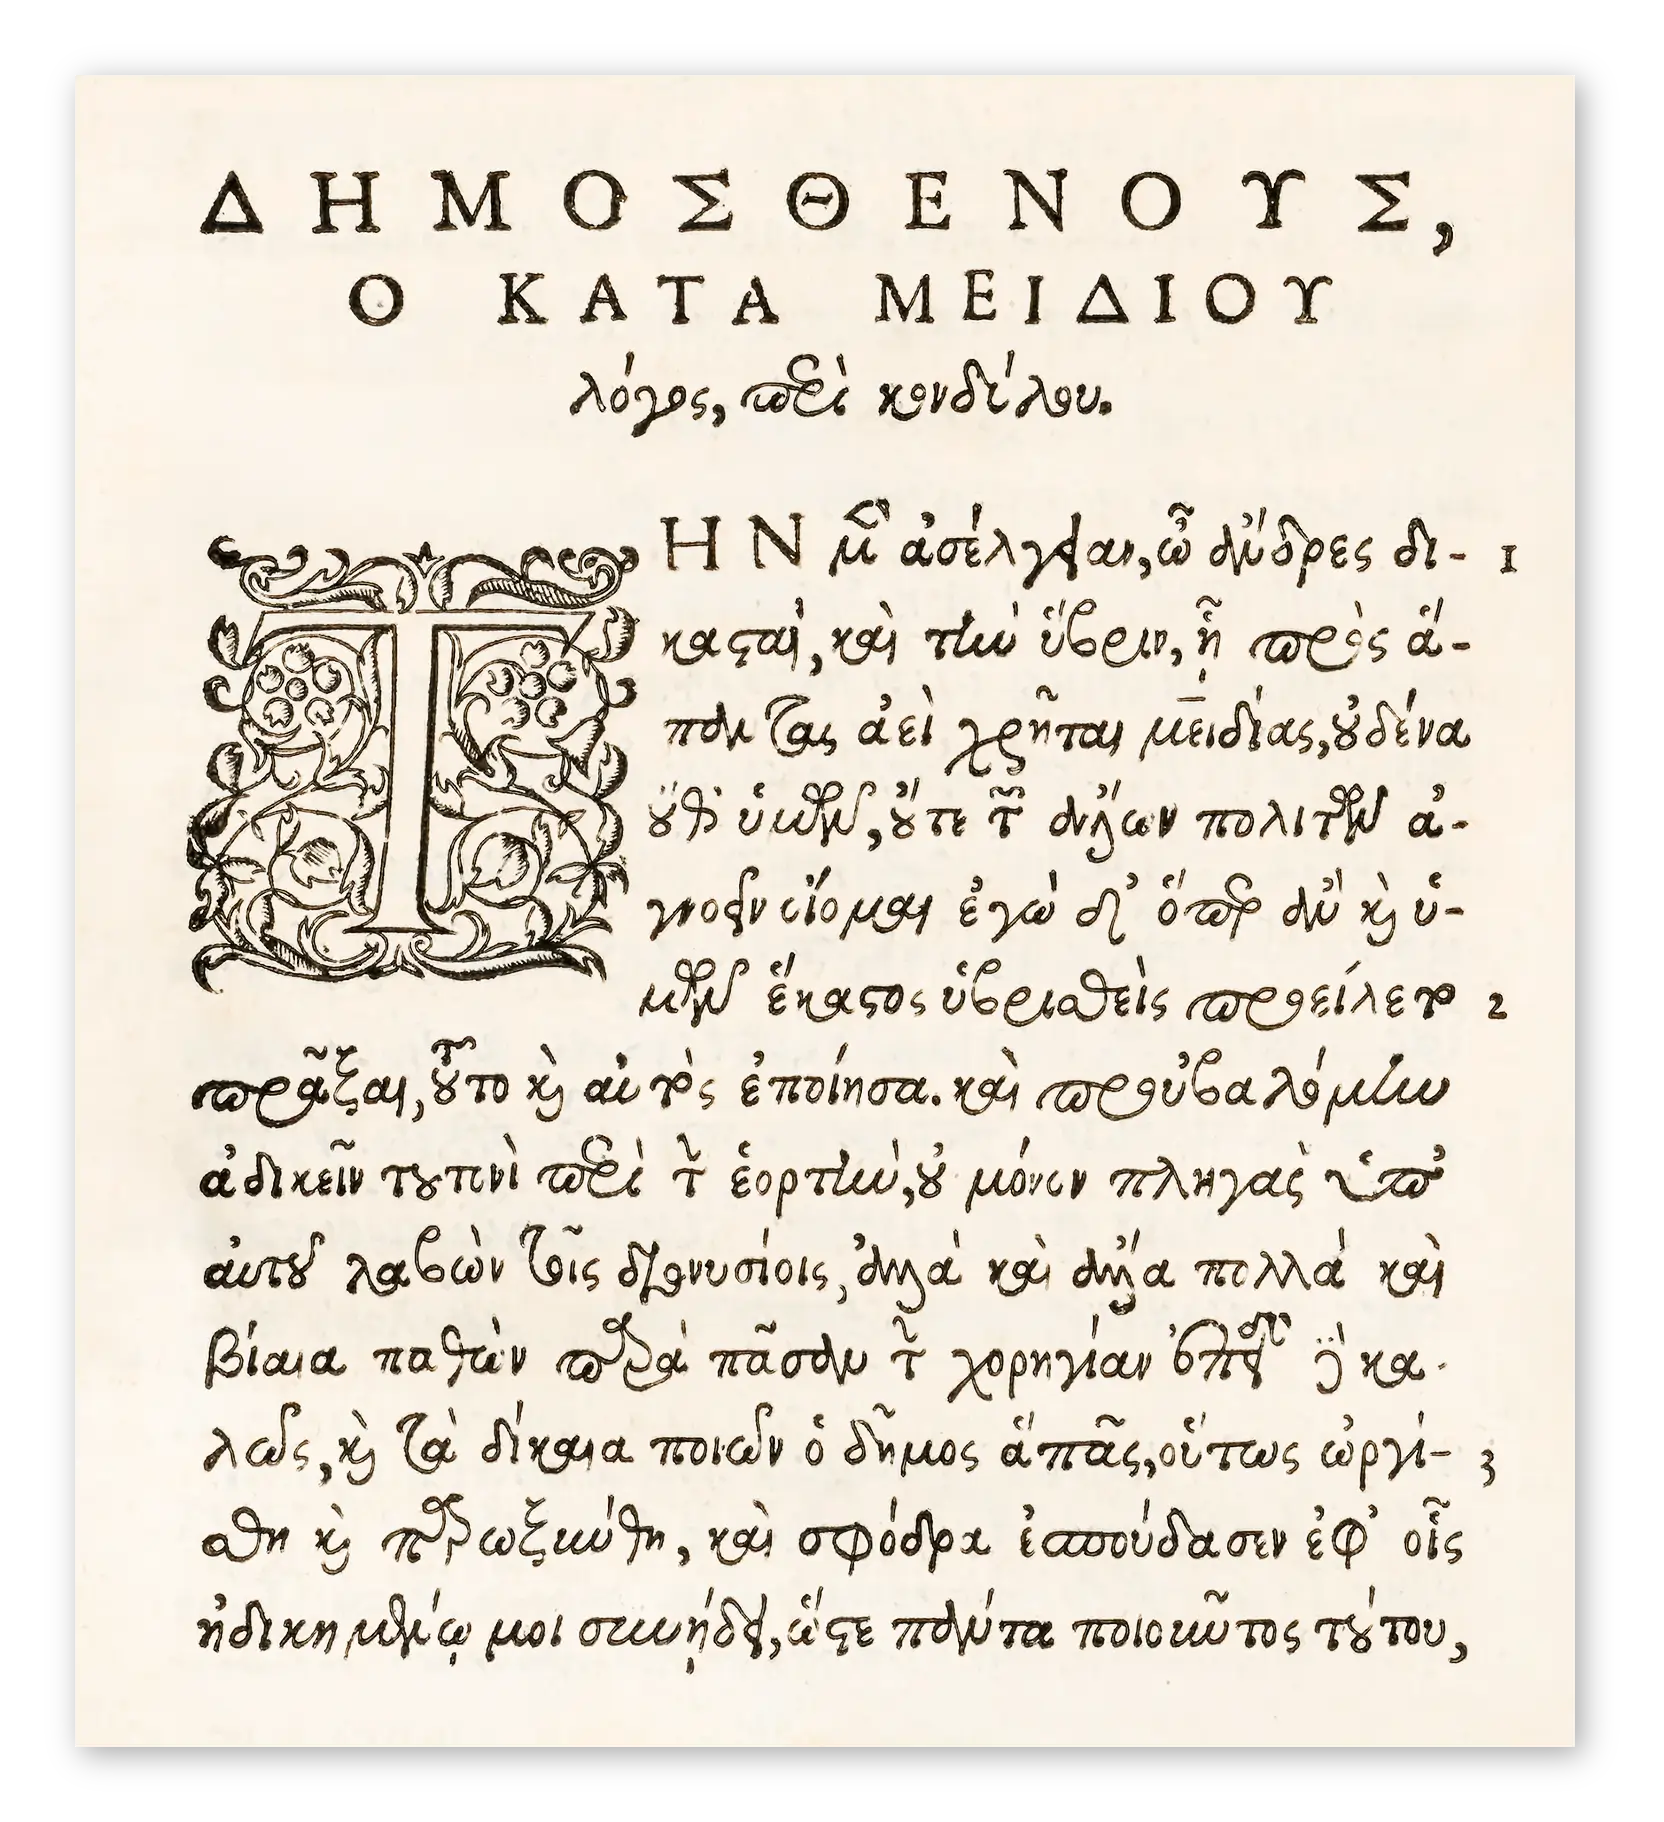 ΔΗΜΟΣΘΕΝΟΥΣ,
Ο ΚΑΤΑ ΜΕΙΔΙΟΥ
λόγος, περὶ κονδύλου.
ΤΗΝ μὲν ἀσέλγειαν, ὦ ἄνδρες δι- 1
καςαὶ, καὶ τὴν ὕβριν, ᾗ πρὸς ἅ-
παντας ἀεὶ χρῆται μειδίας, οὐδένα
οὔθ' ὑμῶν, οὔτε τῶν ἄλλων πολιτῶν ἀ-
γνοεῖν οἴομαι ἐγὼ δ' ὅπερ ἂν καὶ ὑ-
μῶν ἕκαςος ὑβριθεὶς προείλετο 2
πρᾶξαι, τοῦτο καὶ αὐτὸς ἐποίησα. καὶ προὐβαλόμην
ἀδικεῖν τουτονὶ περὶ τὴν ἑορτὴν, οὐ μόνον πληγὰς ὑπ'
αὐτοῦ λαβὼν τοῖς διονυσίοις, ἀλλὰ καὶ ἄλλα πολλὰ καὶ
βίαια παθὼν παρὰ πᾶσαν τὴν χορηγίαν ἐπειδὴ δὲ κα-
λῶς, καὶ τὰ δίκαια ποιῶν ὁ δῆμος ἅπας, οὕτως ὠργί- 3
σθη καὶ παρωξύνθη, καὶ σφόδρα ἐσπούδασεν ἐφ' οἷς
ἠδικημένῳ μοι συνῄδει, ὥςε πάντα ποιοῦντος τούτου,